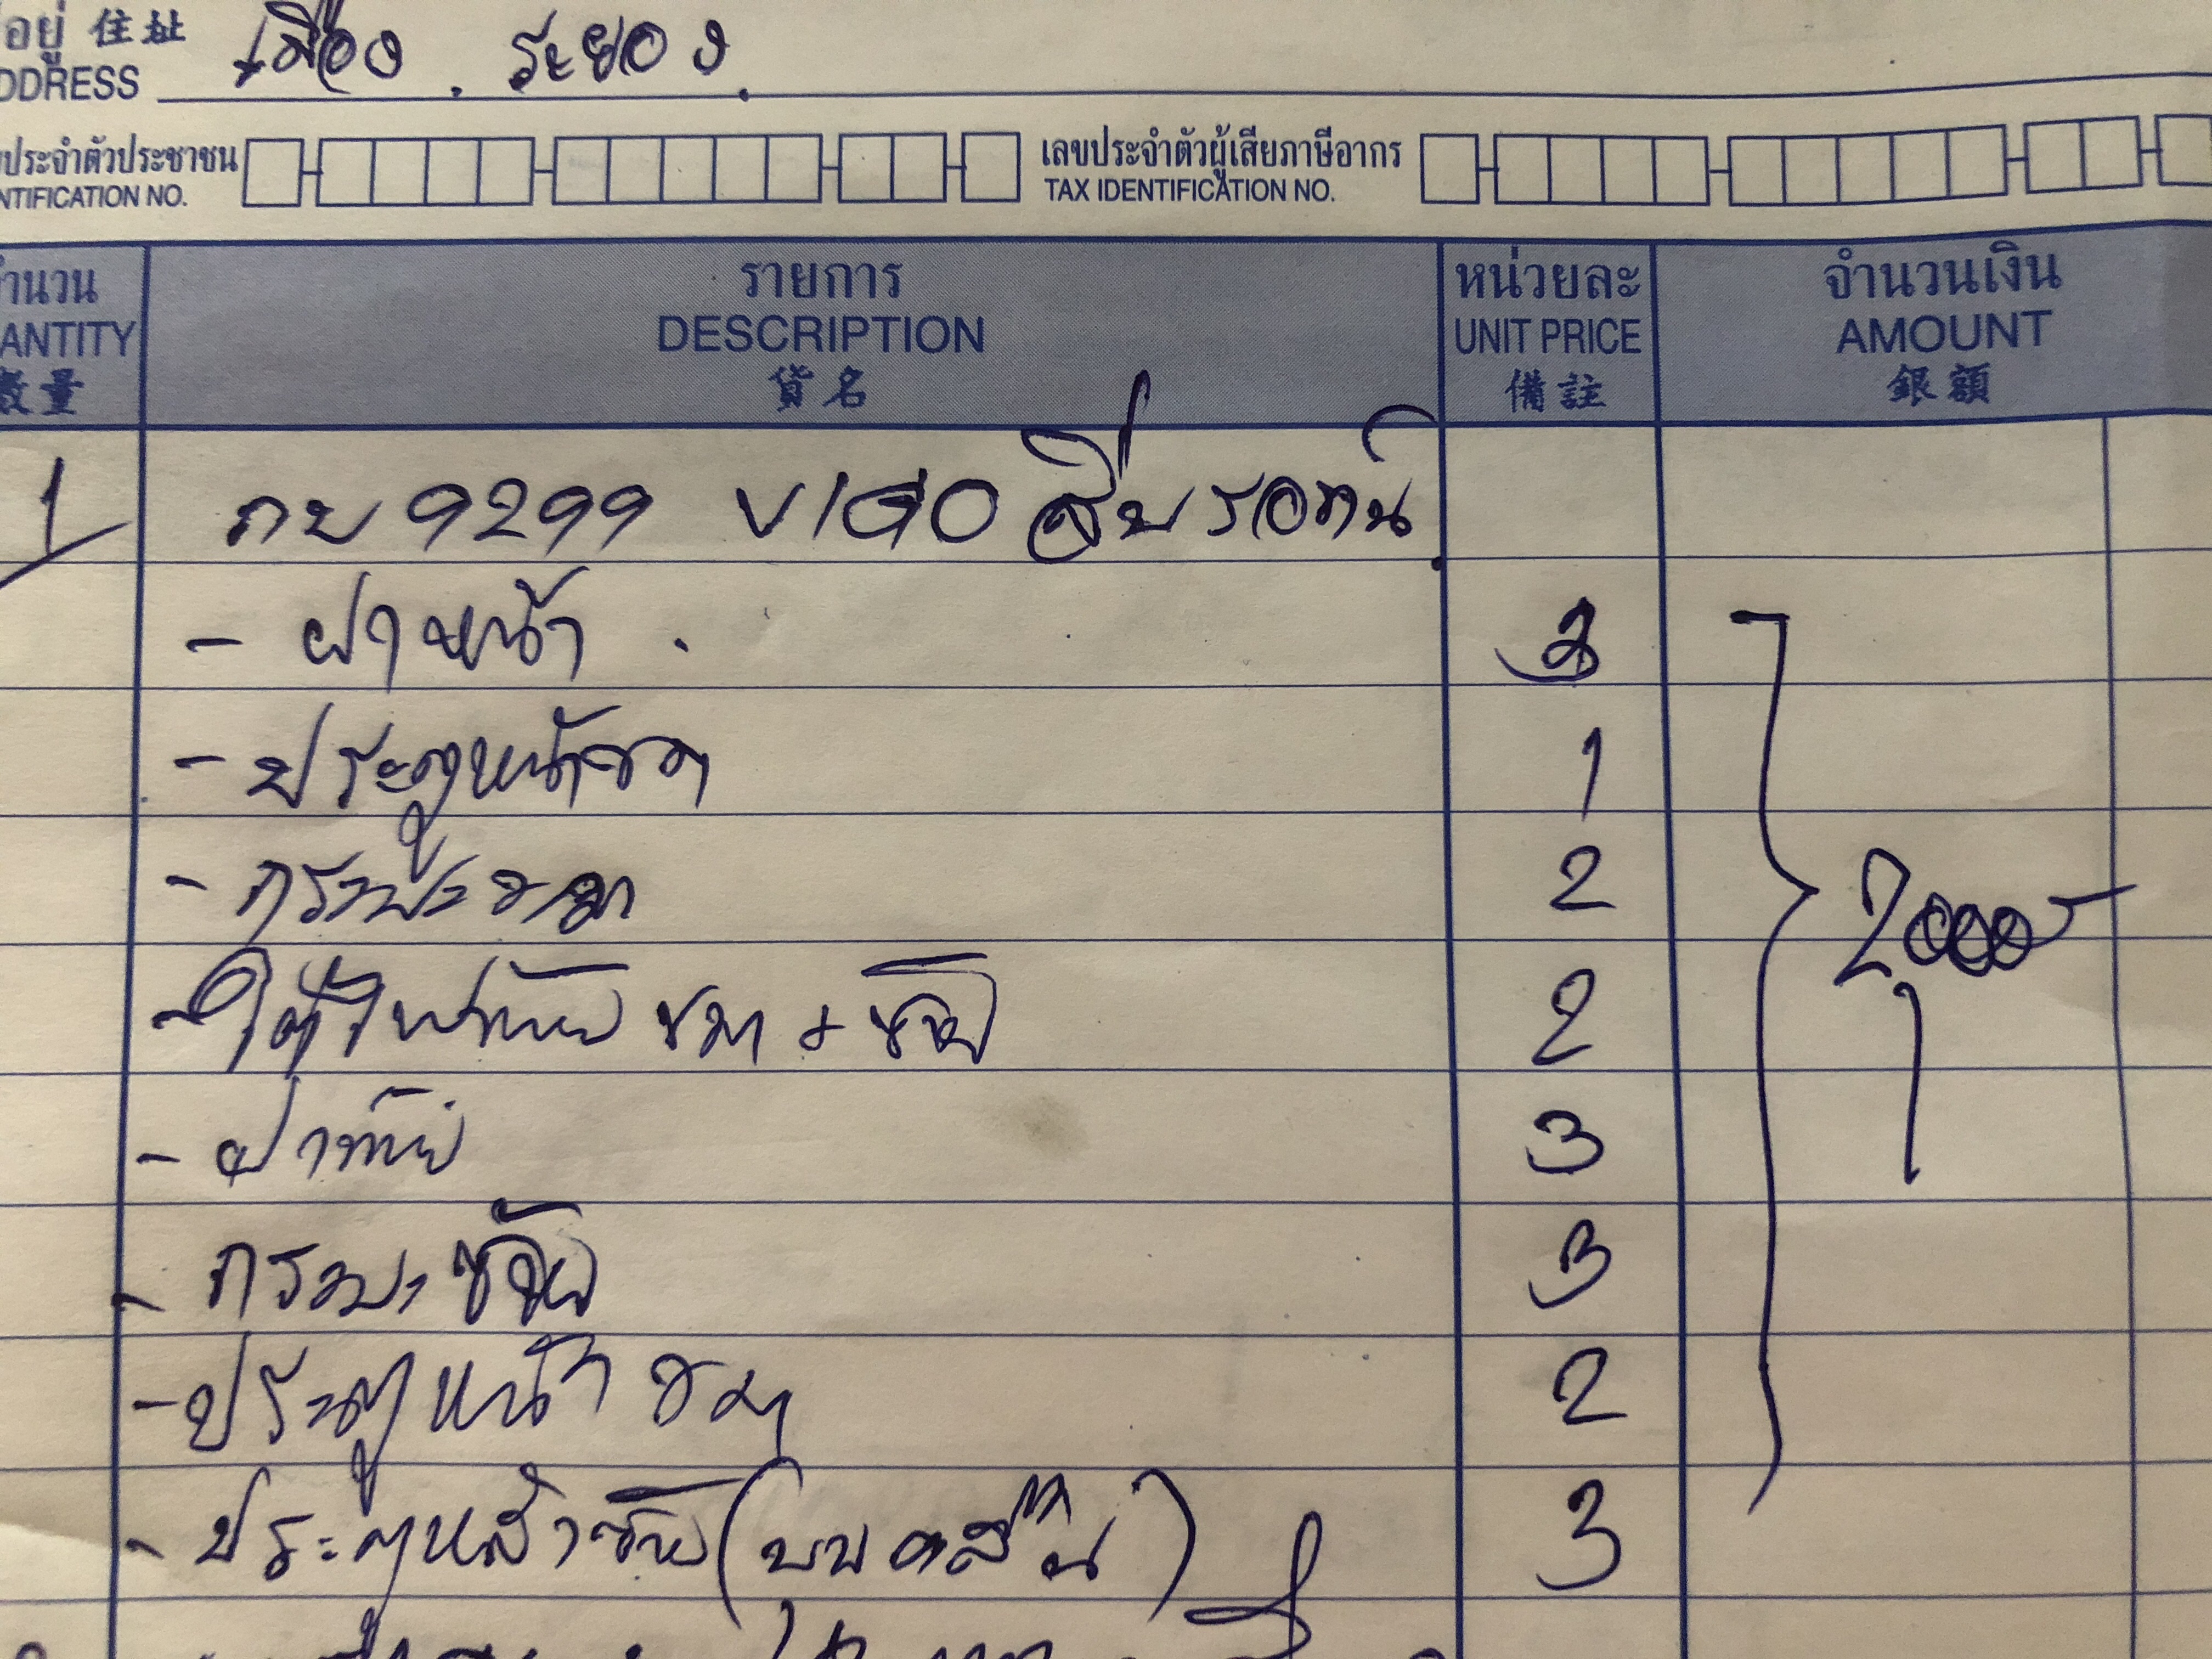 อยู่ 住址
ADDRESS เมือง. ระยอง.
ประจำตัวประชาชน เลขประจำตัวผู้เสียภาษีอากร
NTIFICATION NO. TAX IDENTIFICATION NO.
จำนวน รายการ หน่วยละ จำนวนเงิน
ANTITY DESCRIPTION UNIT PRICE AMOUNT
數量 貨名 備註 銀額
1 กย 9299 VIGO
- ฝาหน้า 3
- ประตูหน้าขวา 1
- กระบะขวา 2
- ใต้ไฟท้าย ขวา + ซ้าย 2
- ฝาท้าย 3
- กระบะ ซ้าย 3
- ประตูหน้า ขวา 2
- ประตูหลังซ้าย ( ) 3
2000